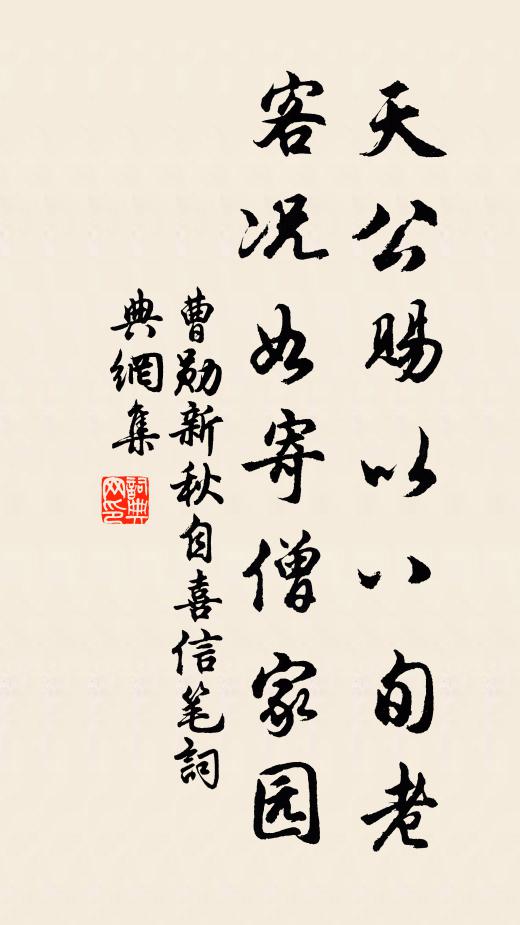 天公赐以八旬老
客况如寄僧家园
曹勋新秋自喜信笔詞
典網集
詞典网印